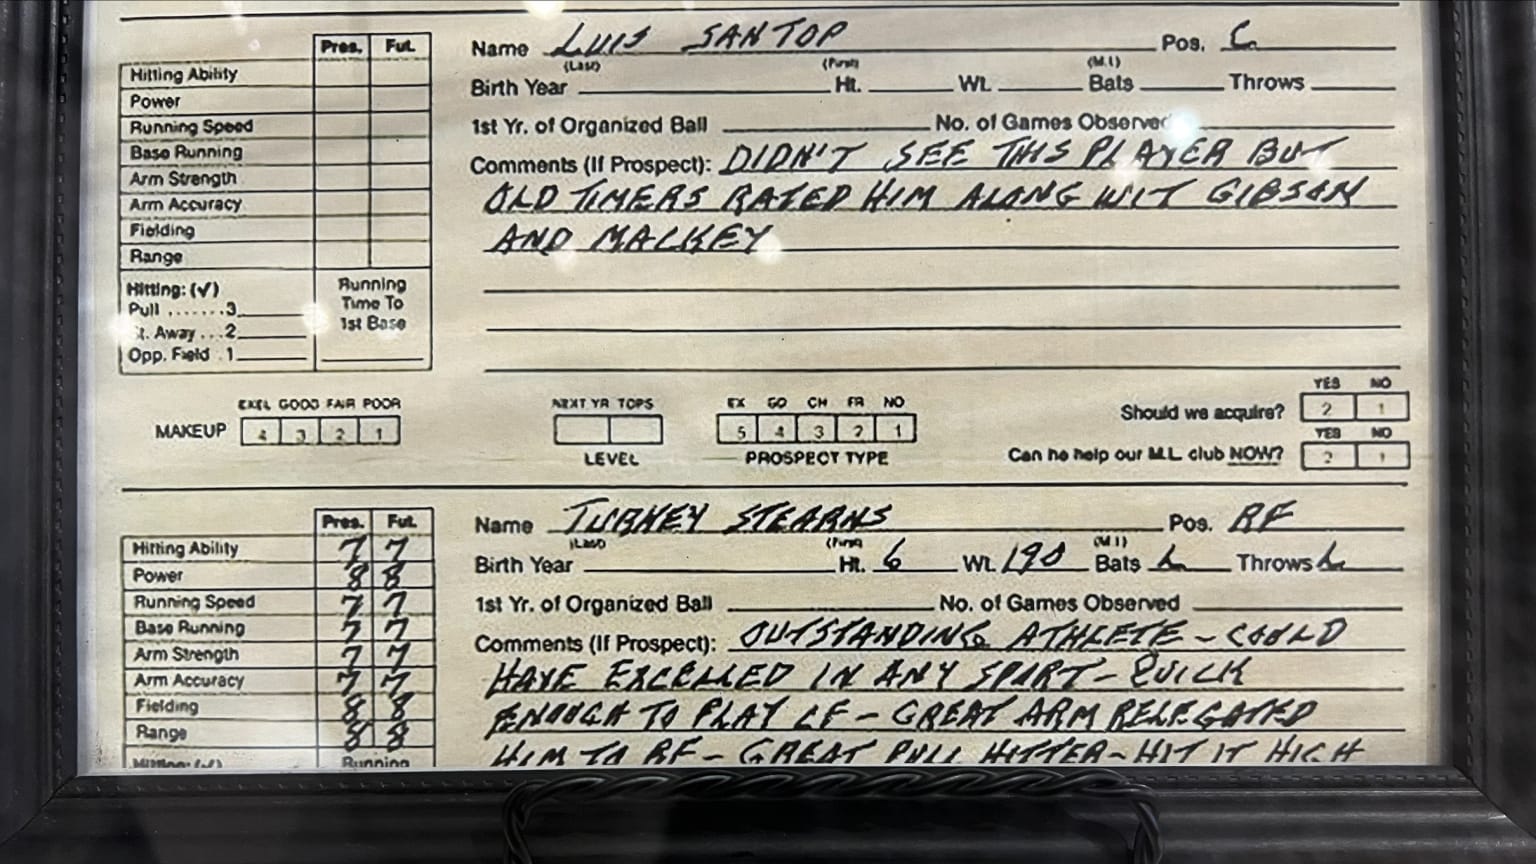 Pres. Fut.
Name LUIS SANTOP Pos. C
(Last) (First) (M.I.)
Hitting Ability
Birth Year Ht. Wt. Bats Throws
Power
Running Speed
1st Yr. of Organized Ball No. of Games Observed
Base Running
Comments (If Prospect): DIDN'T SEE THIS PLAYER BUT
Arm Strength
OLD TIMERS RATED HIM ALONG WIT GIBSON
Arm Accuracy
Fielding
AND MACKEY
Range
Hitting: (✓)
Pull .......3
St. Away ...2
Opp. Field .1
Running
Time To
1st Base
EXEL GOOD FAIR POOR
MAKEUP 4 3 2 1
NEXT YR TOPS
LEVEL
EX GO CH FR NO
5 4 3 2 1
PROSPECT TYPE
YES NO
Should we acquire? 2 1
YES NO
Can he help our M.L. club NOW? 2 1
Pres. Fut.
Name TURNEY STEARNS Pos. RF
(Last) (First) (M.I.)
Hitting Ability 7 7
Birth Year Ht. 6 Wt. 190 Bats L Throws L
Power 8 8
Running Speed 7 7
1st Yr. of Organized Ball No. of Games Observed
Base Running 7 7
Comments (If Prospect): OUTSTANDING ATHLETE - COULD
Arm Strength 7 7
HAVE EXCELLED IN ANY SPORT - QUICK
Arm Accuracy 7 7
Fielding 8 8
ENOUGH TO PLAY CF - GREAT ARM RELEGATED
Range 8 8
HIM TO RF - GREAT PULL HITTER - HIT IT HIGH
Hitting: (✓)
Running